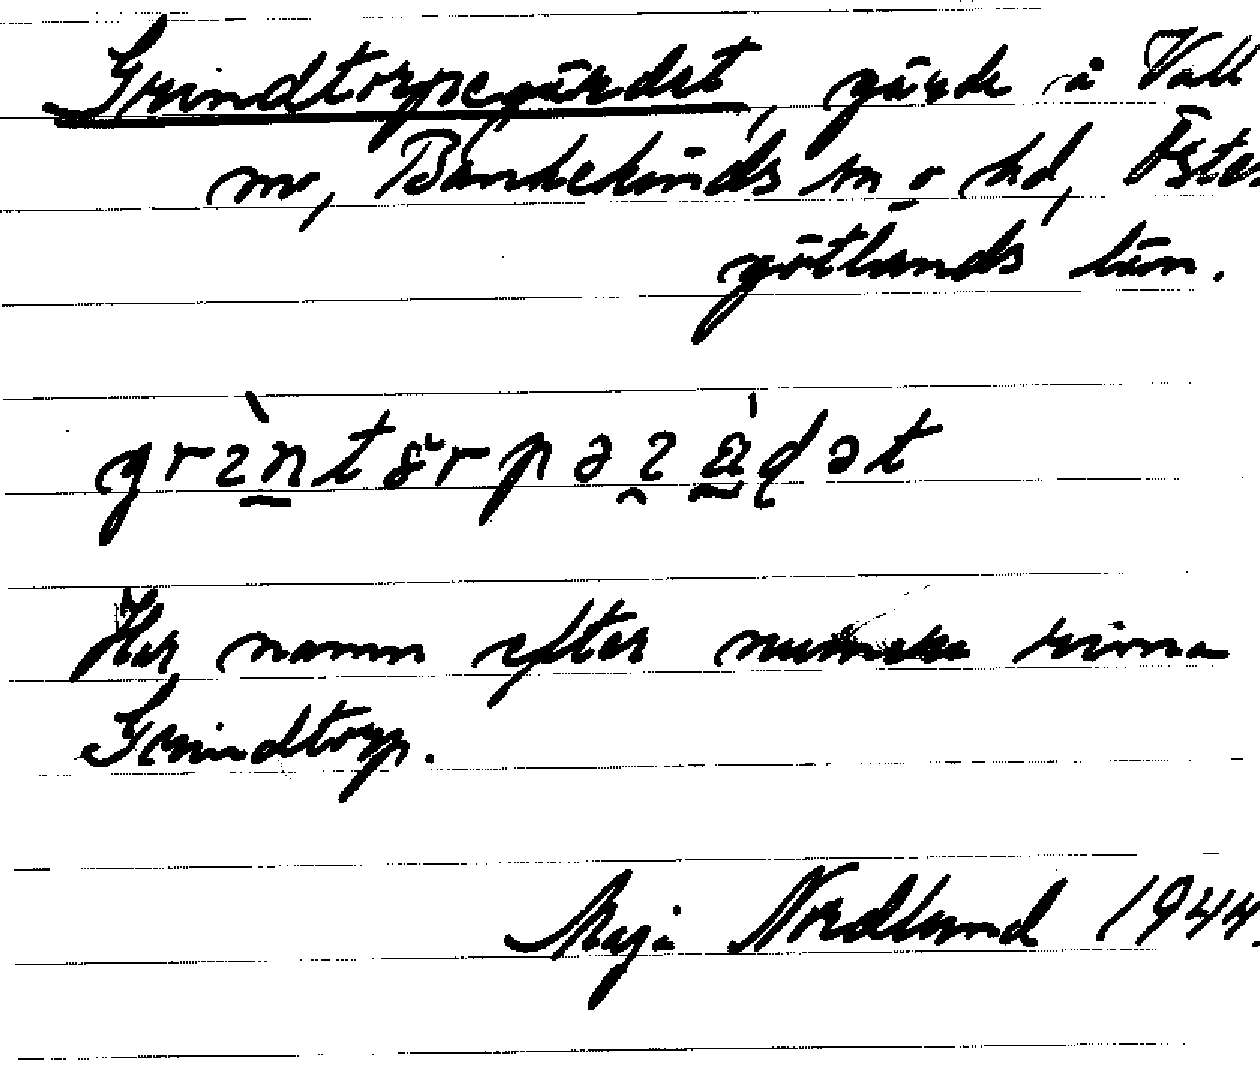 Grindtorpegärdet, gärde å Vall
nr, Bankekinds sn o hd, Öster
götlands län.
grɪ̀ntörpəɿädət
Har namn efter
Grindtorp.
Maja Nordlund 1944.